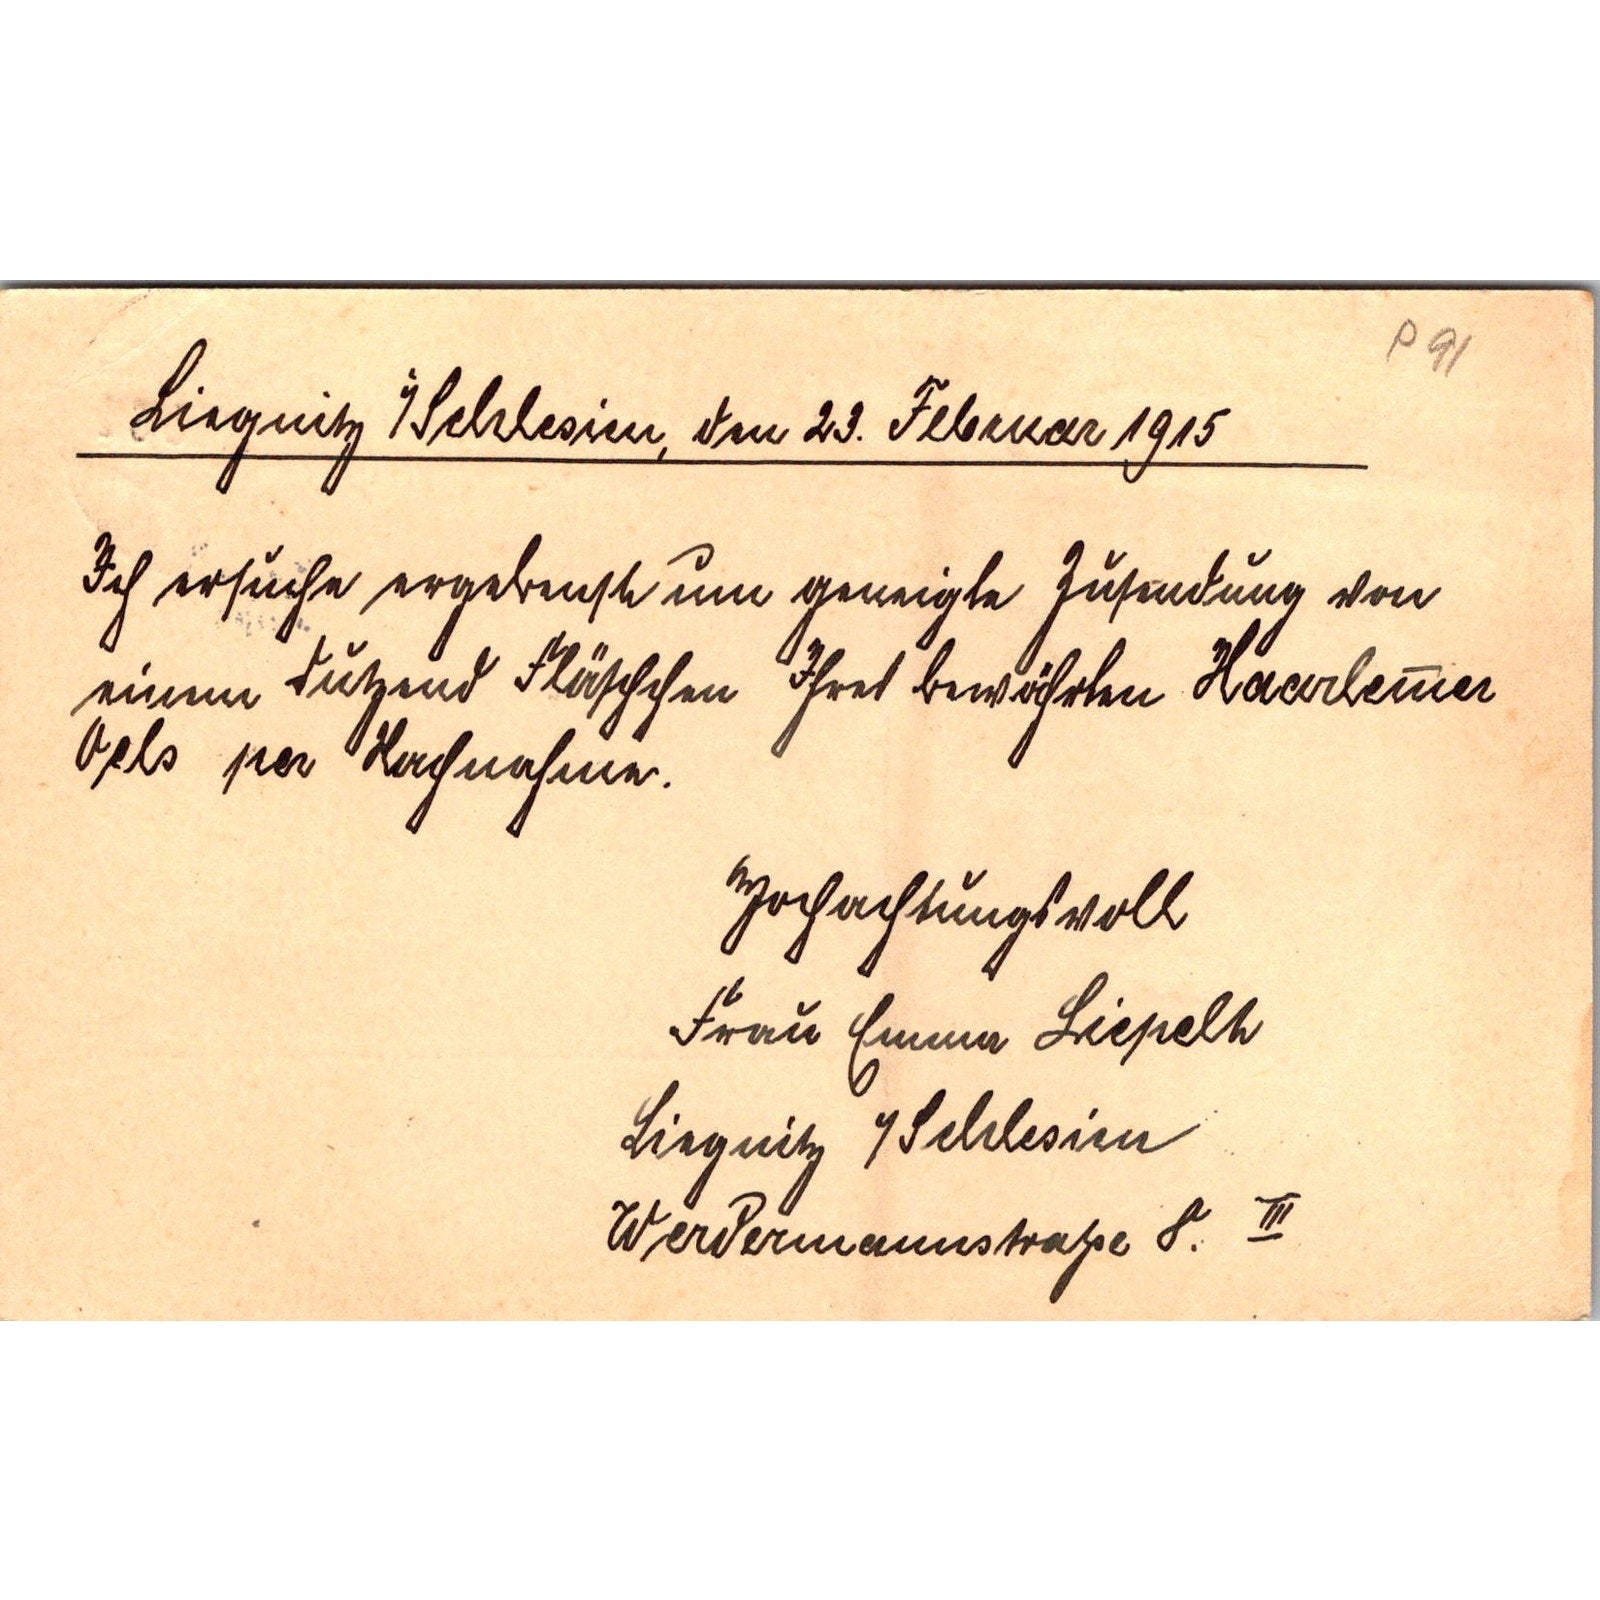 P 91
Liegnitz i/Schlesien, den 23. Februar 1915
Ich ersuche ergebenst um geneigte Zusendung von
einem Dutzend Fläschchen Ihres bewährten Haarlem̅er
Oels per Nachnahme.
Hochachtungsvoll
Frau Emma Liepelt
Liegnitz i/Schlesien
Werdermannstraße 8. III